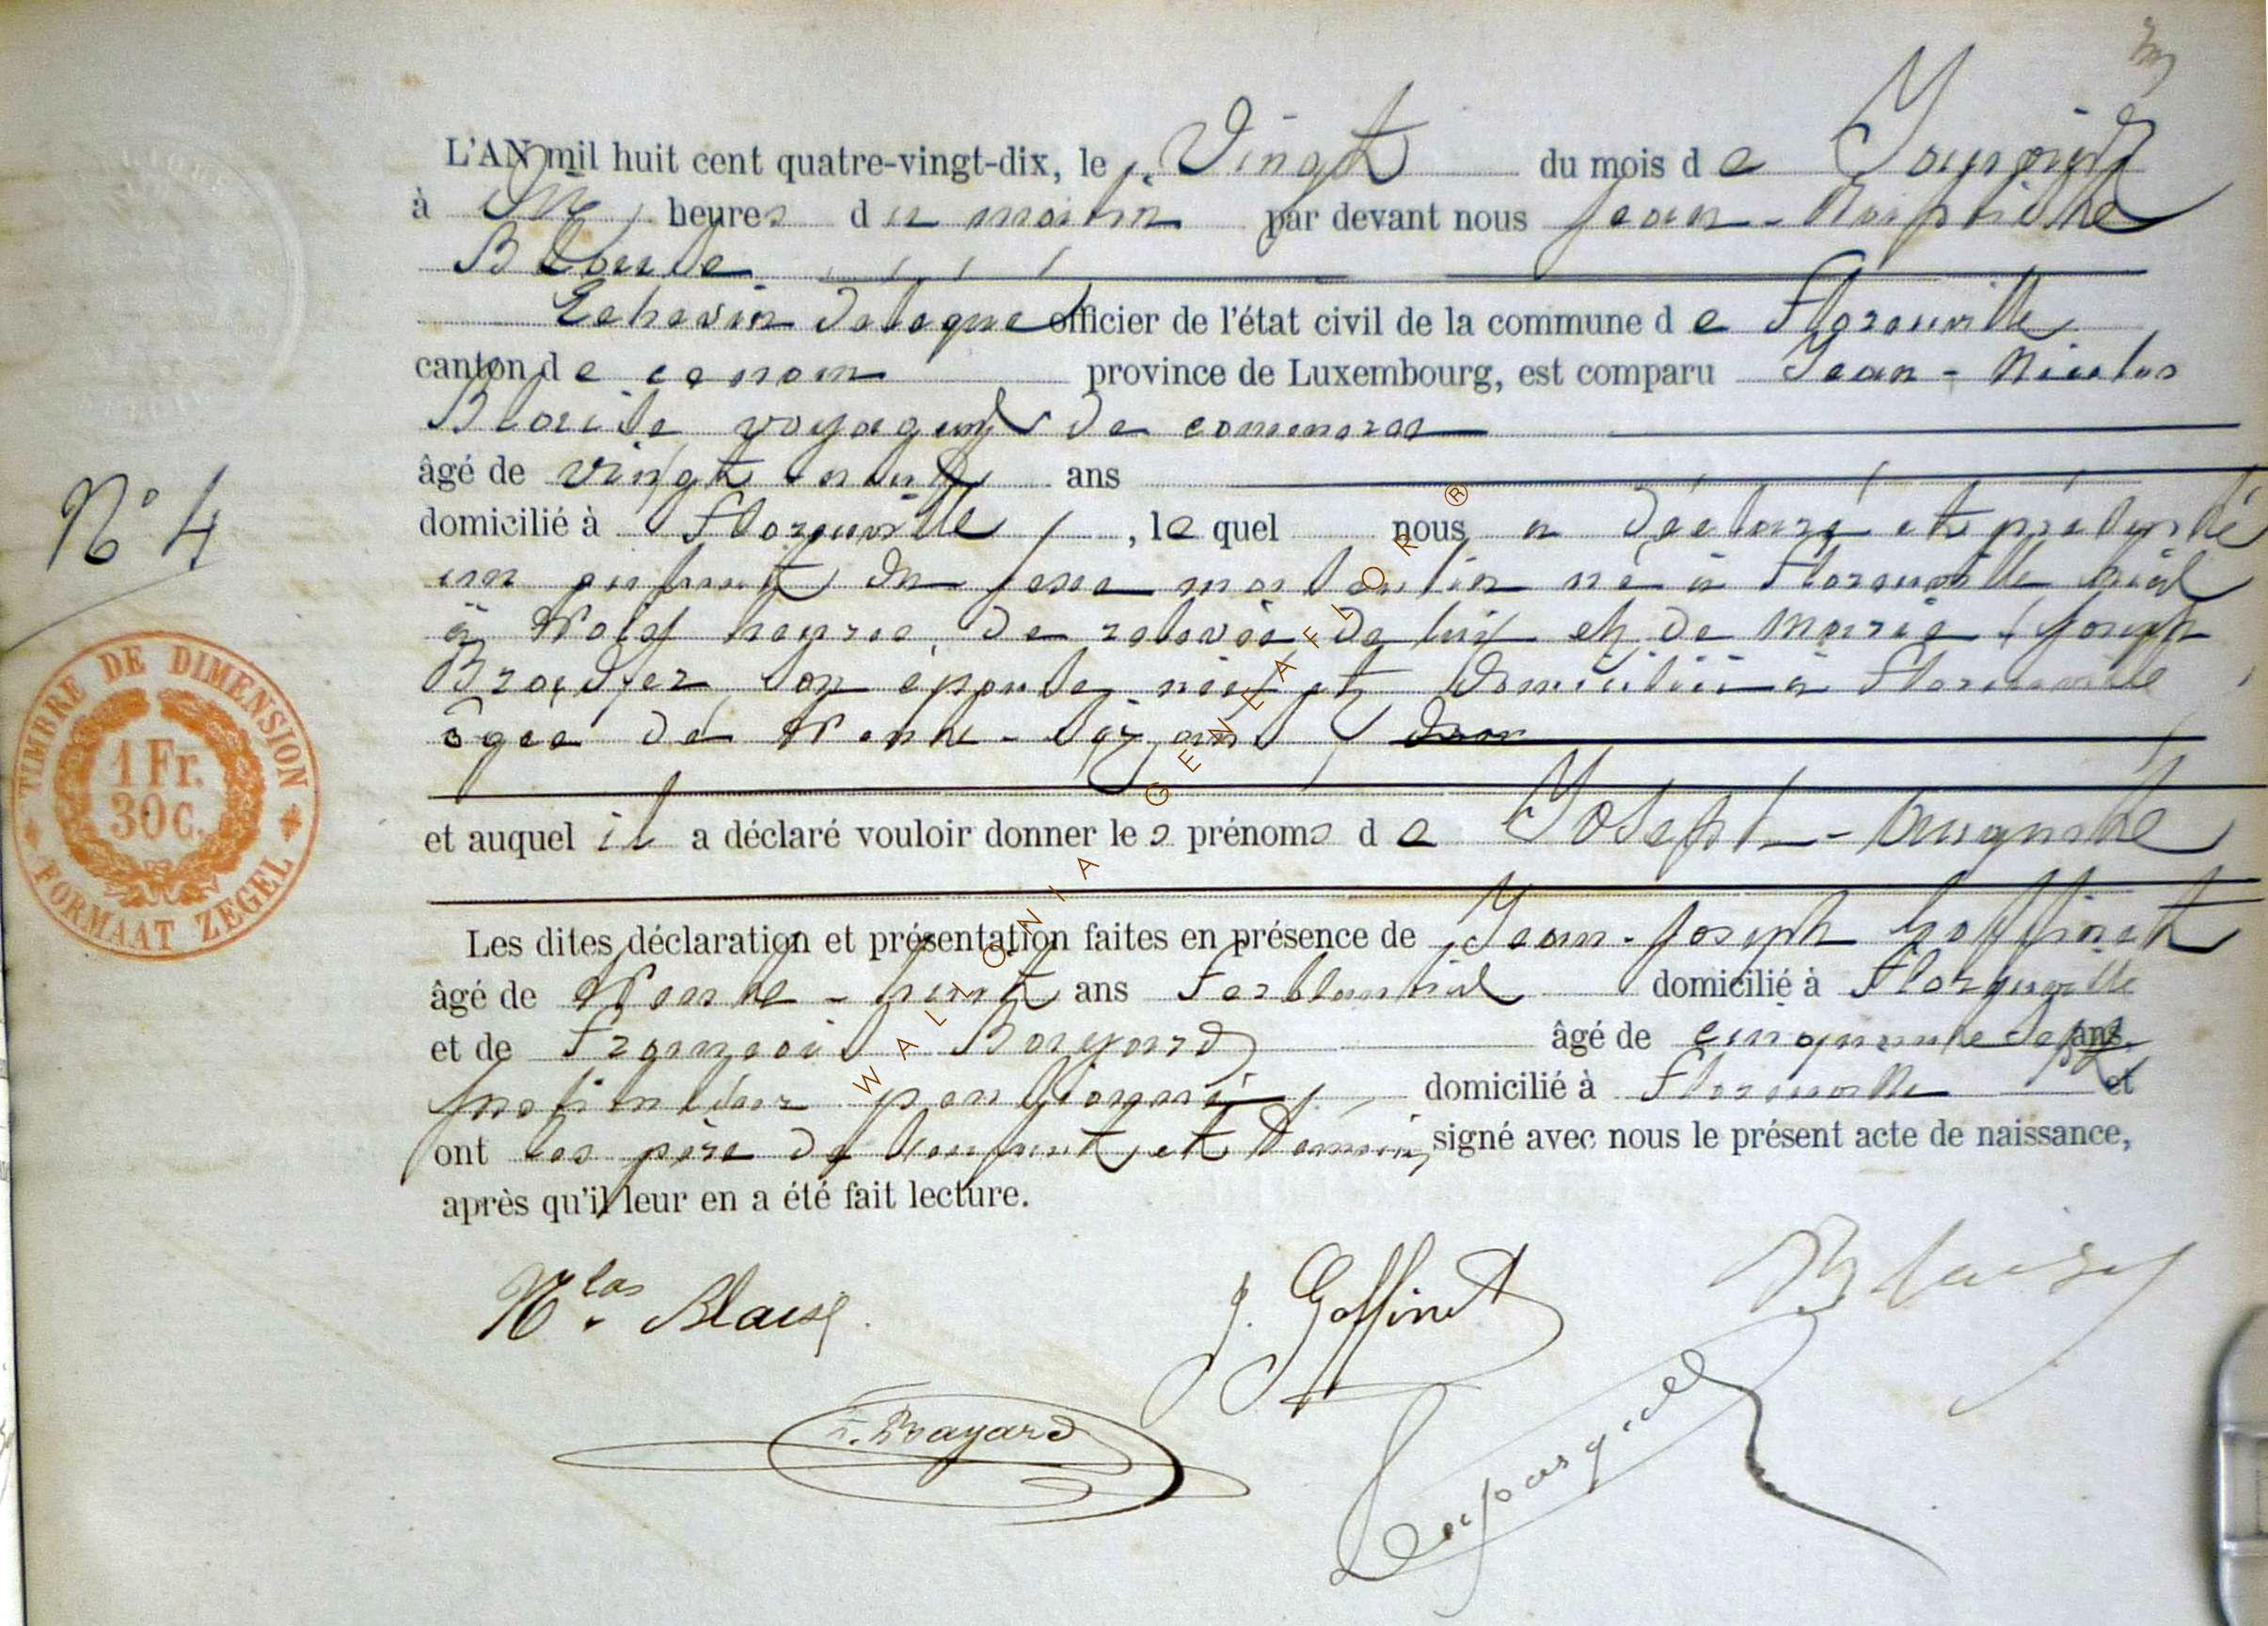 L'AN mil huit cent quatre-vingt-dix, le Vingt du mois de Janvier
à heures du matin par devant nous Jean-Baptiste
Blaise
Echevin délégué officier de l'état civil de la commune de Florenville
canton de ce nom province de Luxembourg, est comparu Jean-Nicolas
Blaise voyageur de commerce
âgé de vingt-neuf ans
domicilié à Florenville, lequel nous a déclaré et présenté
un enfant du sexe masculin né à Florenville hier
à trois heures de relevée de lui et de Marie Joseph
son épouse née et domiciliée à Florenville
âgée de trente-six ans
et auquel il a déclaré vouloir donner les prénoms de Joseph-Auguste
Les dites déclaration et présentation faites en présence de Jean-Joseph Goffinet
âgé de trente-huit ans Ferblantier domicilié à Florenville
et de François Bayard âgé de cinquante sept ans,
instituteur pensionné domicilié à Florenville et
ont les père de l'enfant et témoins signé avec nous le présent acte de naissance,
après qu'il leur en a été fait lecture.
N° 4
TIMBRE DE DIMENSION
1 Fr.
30 c.
FORMAAT ZEGEL
Nlas Blaise
J. Goffinet
Blaise
F. Bayard
WALLONIA GENEAFLOR ®